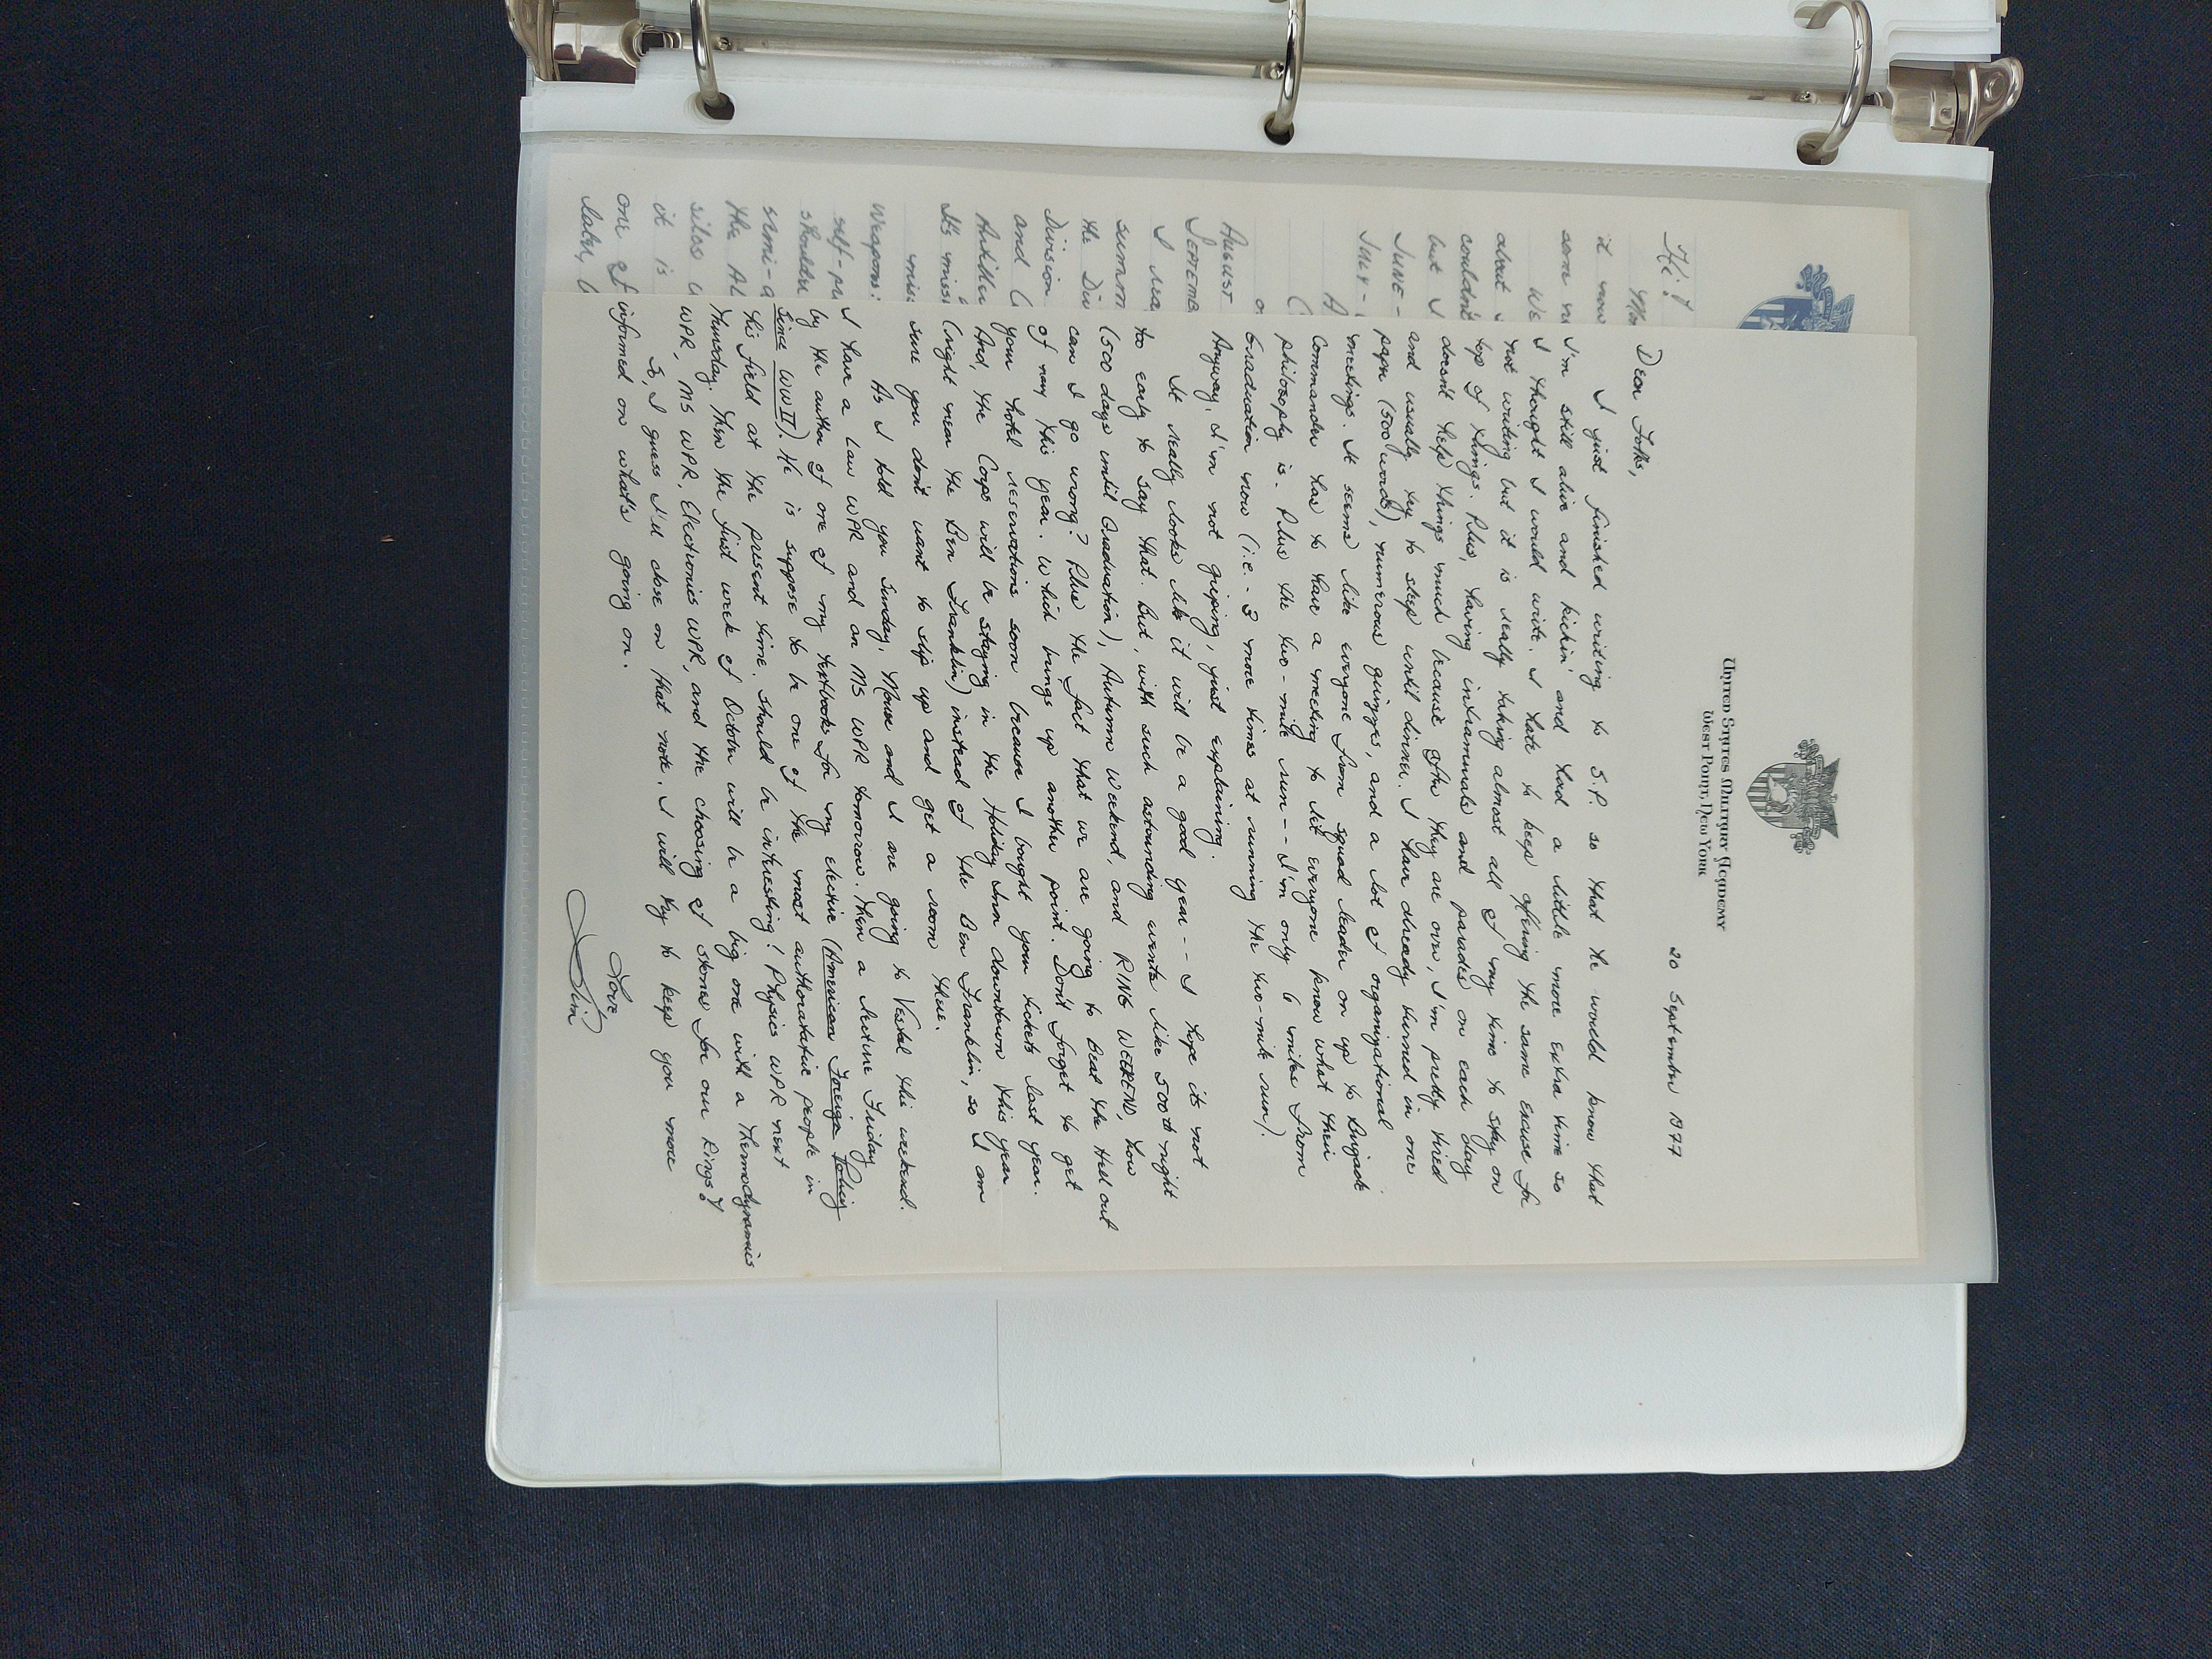 United States Military Academy
West Point, New York
20 September 1977
Dear Folks,
I just finished writing to S.P. so that he would know that
I'm still alive and kickin' and had a little more extra time so
I thought I would write. I hate to keep offering the same excuse for
not writing but it is really taking almost all of my time to stay on
top of things. Plus, having intramurals and parades on each day
doesn't help things much because after they are over, I'm pretty tired
and usually try to sleep until dinner. I have already turned in one
paper (500 words), numerous quizzes, and a lot of organizational
meetings. It seems like everyone from squad leader on up to Brigade
Commander has to have a meeting to let everyone know what their
philosophy is. Plus the two-mile run -- I'm only 6 miles from
Graduation now (i.e. - 3 more times at running the two-mile run).
Anyway, I'm not griping, just explaining.
It really looks like it will be a good year -- I hope its not
to early to say that. But, with such astounding events like 500th night
(500 days until Graduation), Autumn Weekend, and RING WEEKEND, how
can I go wrong? Plus the fact that we are going to Beat the Hell out
of navy this year. Which brings up another point. Don't forget to get
your hotel reservations soon because I bought your tickets last year.
And, the Corps will be staying in the Holiday Inn downtown this year
(right near the Ben Franklin) instead of the Ben Franklin, so I am
sure you don't want to slip up and get a room there.
As I told you Sunday, Mouse and I are going to Vestal this weekend.
I have a Law WPR and an MS WPR tomorrow. Then a lecture Friday
by the author of one of my textbooks for my elective (American Foreign Policy
Since WWII). He is suppose to be one of the most authoratative people in
this field at the present time. Should be interesting! Physics WPR next
Thursday. Then the first week of October will be a big one with a Thermodynamics
WPR, MS WPR, Electronics WPR, and the choosing of stones for our Rings!
So, I guess I'll close on that note. I will try to keep you more
informed on what's going on.
Love
Jim
Hi!
it now
We
about
couldn't
but I
JUNE -
JULY -
AUGUST
SEPTEMB
I
summ
the Div
Division
and
Artiller
It's miss
Weapons:
self-pr
shoulder
semi-a
the AL
silos
it is
one of
later,